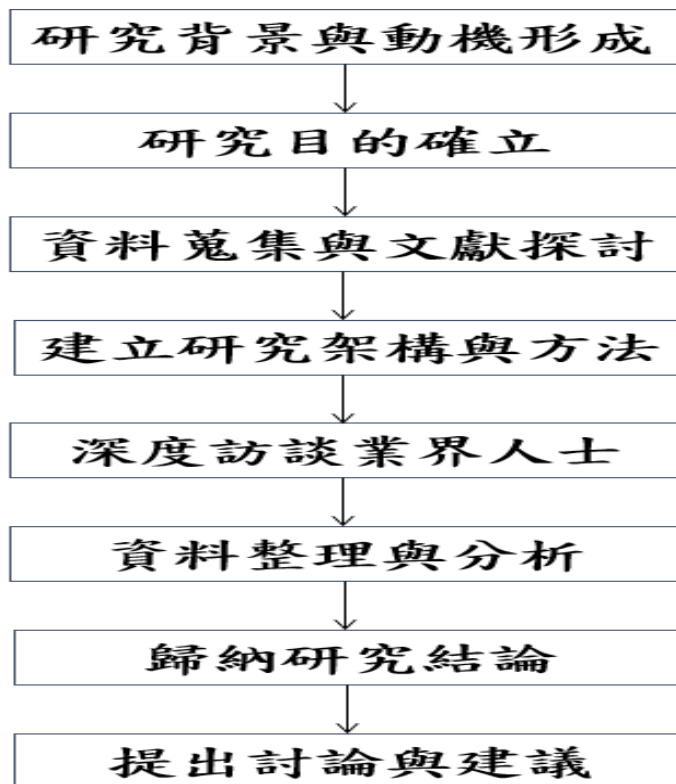 研究背景與動機形成
研究目的確立
資料蒐集與文獻探討
建立研究架構與方法
深度訪談業界人士
資料整理與分析
歸納研究結論
提出討論與建議